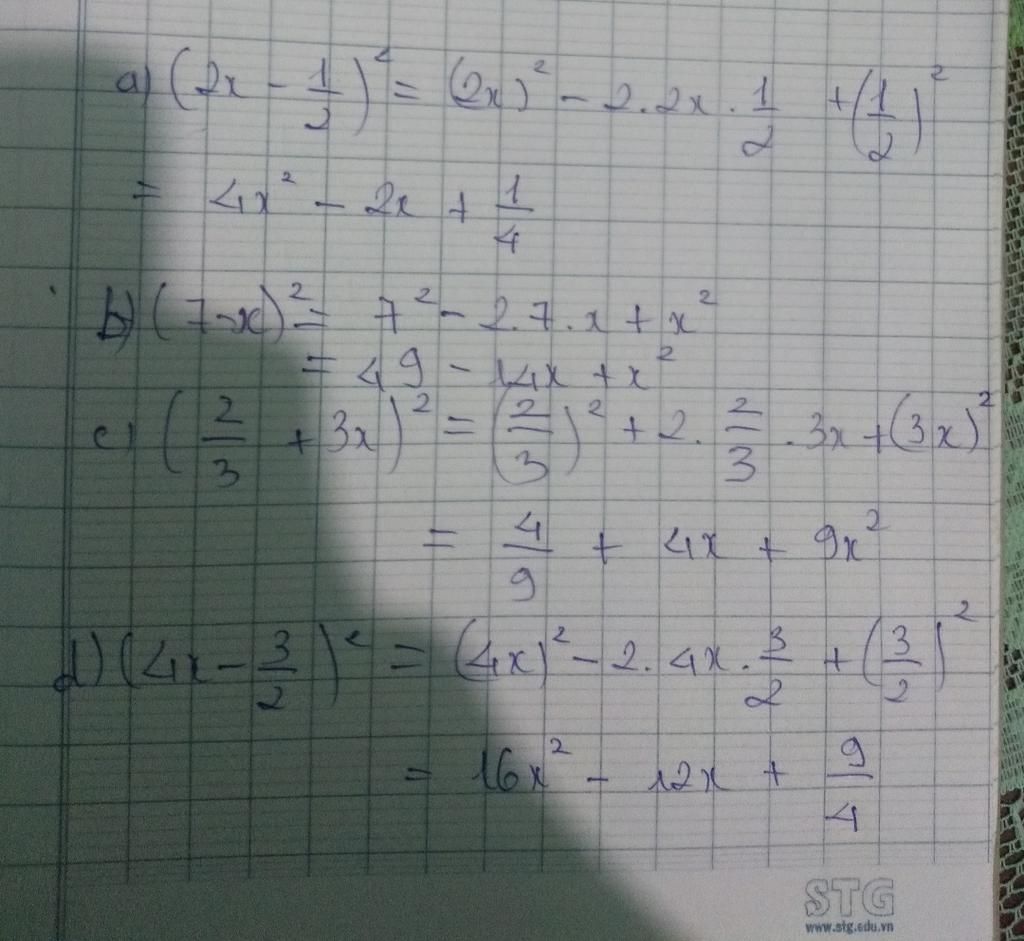 a) (2x - 1/2)² = (2x)² - 2.2x . 1/2 + (1/2)²
= 4x² - 2x + 1/4
b) (7-x)² = 7² - 2.7.x + x²
= 49 - 14x + x²
c) (2/3 + 3x)² = (2/3)² + 2. 2/3 . 3x + (3x)²
= 4/9 + 4x + 9x²
d) (4x - 3/2)² = (4x)² - 2. 4x . 3/2 + (3/2)²
= 16x² - 12x + 9/4
STG
www.stg.edu.vn